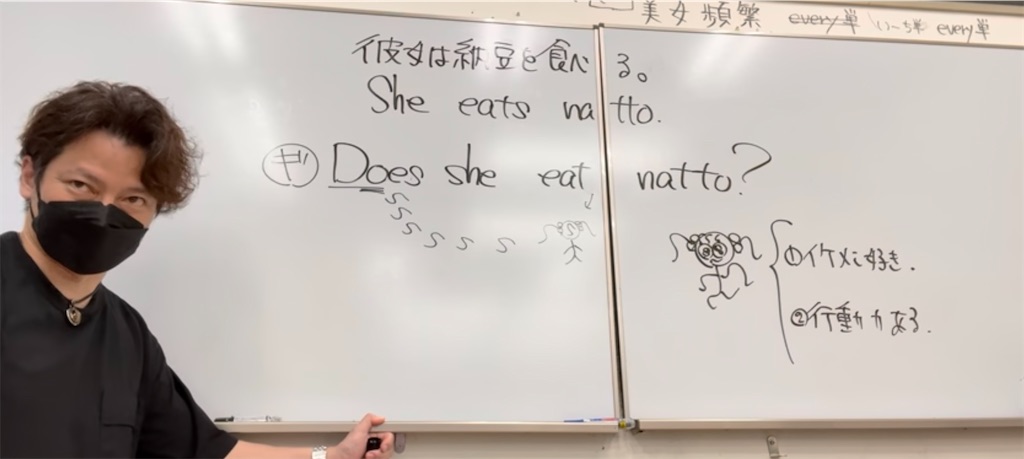 美女頻繁 every単 いーち単 every単
彼女は納豆を食べる。
She eats natto.
ギ Does she eat natto?
s s s s s s s
①イケメン好き.
②行動力ある.